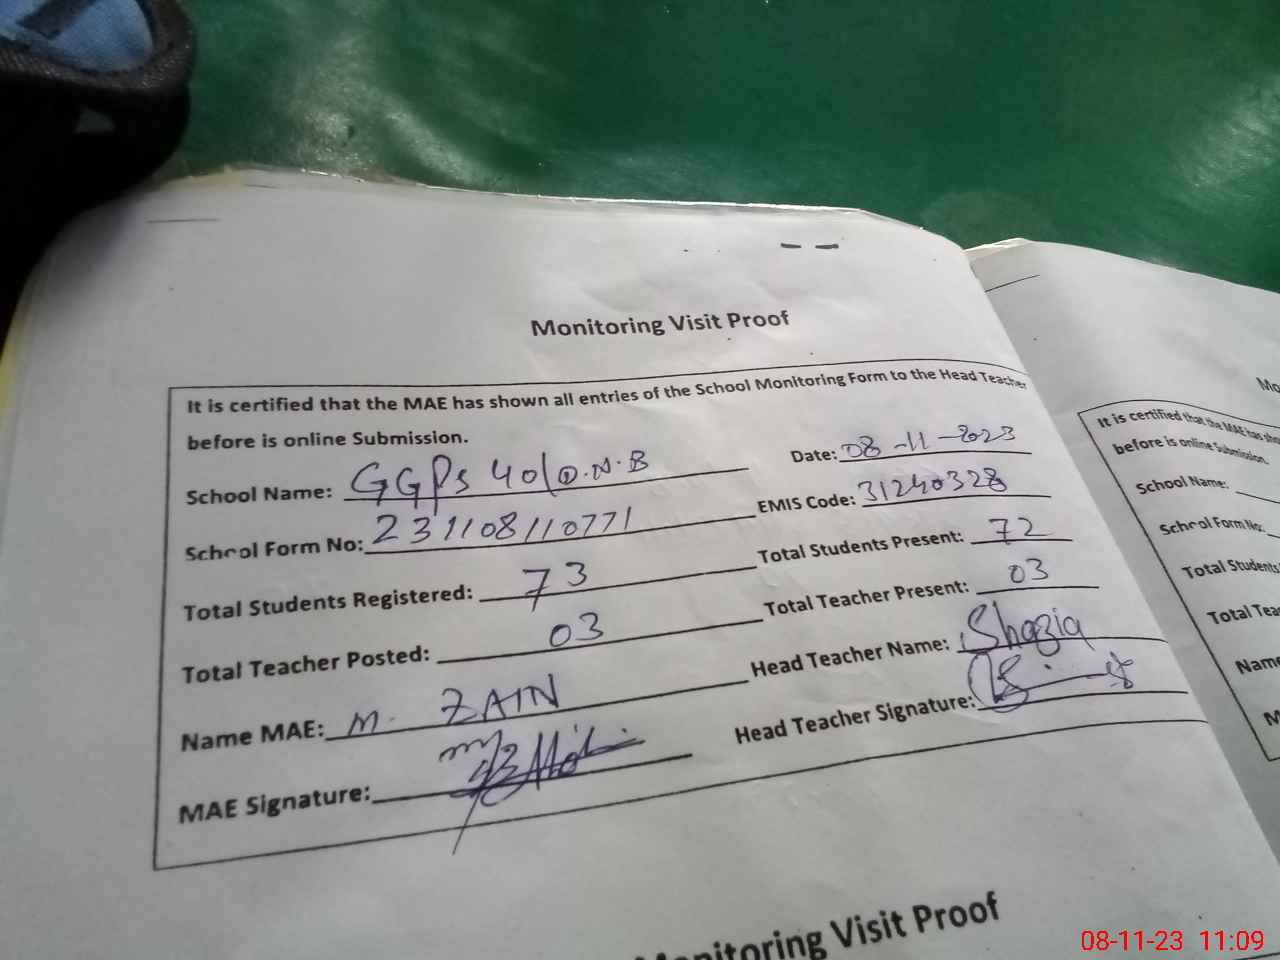 Monitoring Visit Proof
It is certified that the MAE has shown all entries of the School Monitoring Form to the Head Teacher
before is online Submission.
School Name: GGPS 40/D.N.B Date: 08-11-2023
School Form No: 231108110771 EMIS Code: 31240328
Total Students Registered: 73 Total Students Present: 72
Total Teacher Posted: 03 Total Teacher Present: 03
Name MAE: M. ZAIN Head Teacher Name: Shazia
MAE Signature: Head Teacher Signature:
Monitoring Visit Proof
Mo
It is certified that the MAE has sho
before is online Submission.
School Name:
School Form No:
Total Students
Total Tea
Name
M
08-11-23 11:09